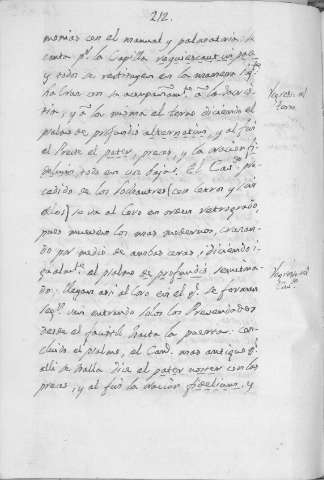 212.
monias con el manual y palmatoria, se
canta pr. la Capilla requiescant in pace
y todos se restituyen en la manera
la Cruz con su acompañamto. a la Sacris-
tia; y a la misma el terno diciendo el
psalmo de profundis alternatim, y al fin
el Preste el pater, preces, y la oracion fi-
delium, todo en voz baja. El Cavdo. pre-
cedido de los Sochantres (con cetros y
) se va al Coro en orden retrogrado,
pues mueven los mas modernos, cruzan-
do por medio de ambas ceras, diciendo i-
gualmte. el psalmo de profundis semitona-
do: llegan asi al Coro en el qe. se forman
segn. van entrando solos los Prevendados
desde el facistol hasta la puerta: con-
cluido el psalmo, el Cand. mas antiguo qe.
alli se halla dice el pater noster con las
preces, y al fin la oracion fidelium, y
Regreso del
terno.
Regreso del
Cavdo.